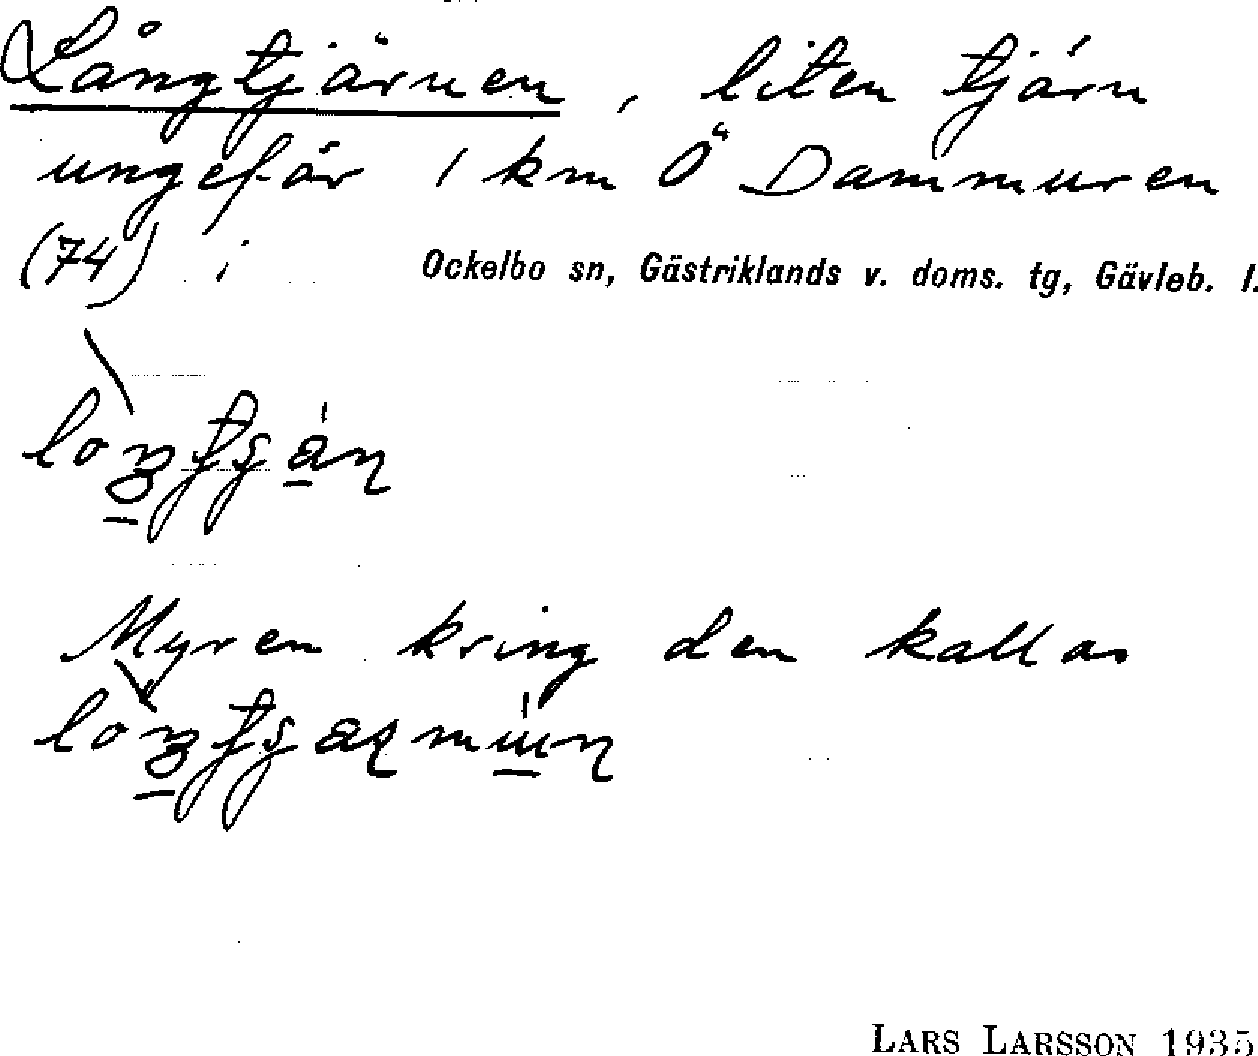 Långtjärnen, liten tjärn
ungefär 1 km Ö Dammuren
(74) i Ockelbo sn, Gästriklands v. doms. tg, Gävleb. l.
Myren kring den kallas
LARS LARSSON 1935